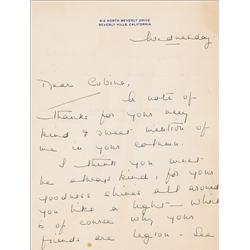 914 NORTH BEVERLY DRIVE
BEVERLY HILLS, CALIFORNIA
Wednesday
Dear Cobina,
A note of
thanks for your very
kind & sweet mention of
me in your column.
I think you must
be always kind, for your
goodness shines all around
you like a light – which
is of course why your
friends are legion. See